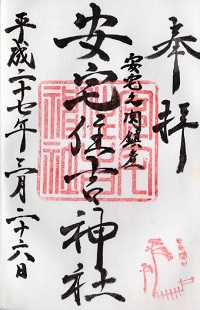 奉拝
安宅之関鎮座
安宅住吉神社
平成二十七年三月二十六日